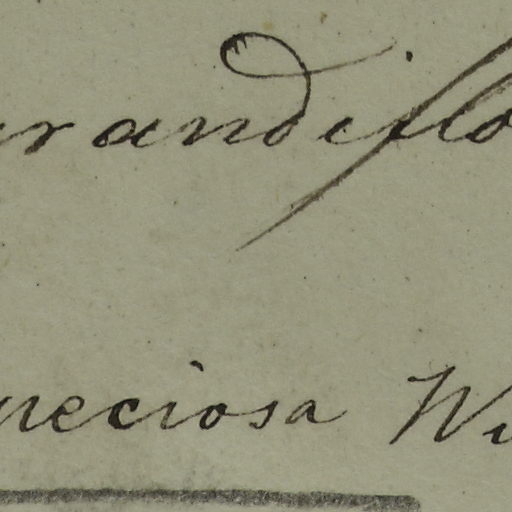 randiflo
peciosa Wi